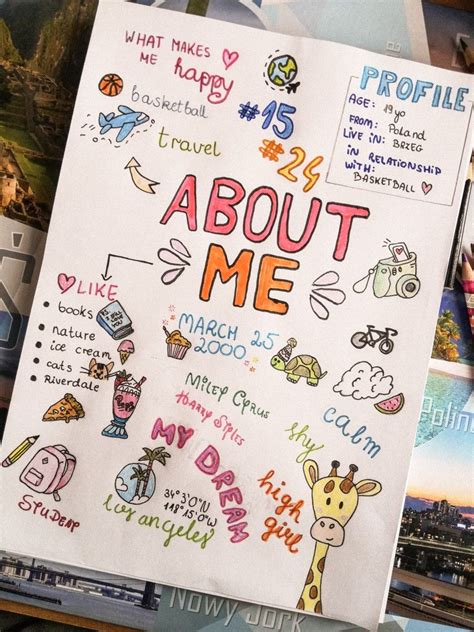 WHAT MAKES
ME happy
basketball
travel
#15
#24
PROFILE
AGE: 19 yo
FROM: Poland
LIVE IN: BRZEG
IN RELATIONSHIP
WITH:
BASKETBALL
ABOUT
ME
LIKE
books
nature
ice cream
cats
Riverdale
MARCH 25
2000
Miley Cyrus
Harry Styles
shy
calm
MY DREAM
high
girl
STUDENT
34°3'0"N
118°15'0"W
los angeles
Nowy Jork